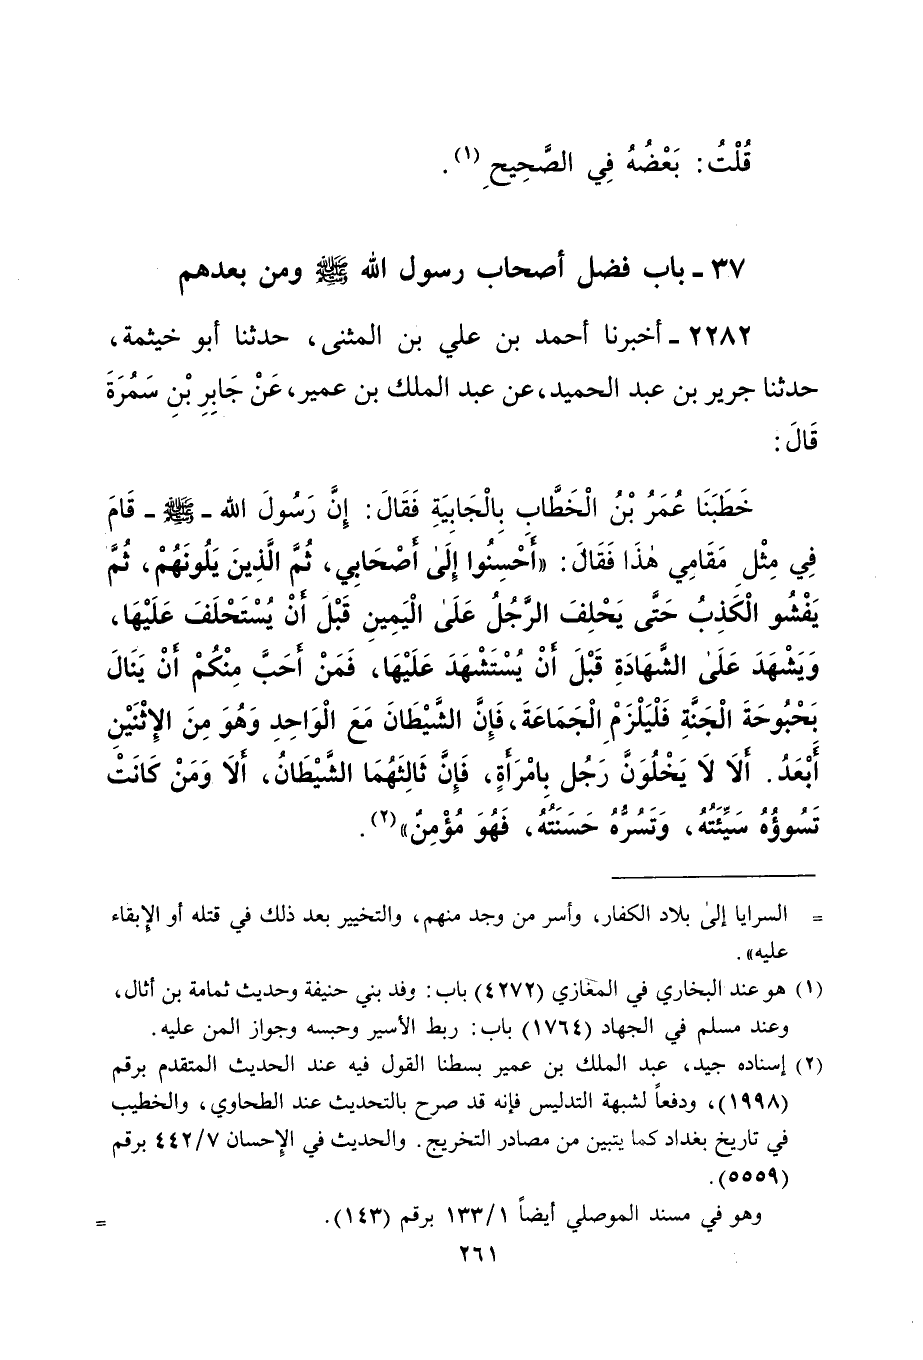 قُلْتُ: بَعْضُهُ فِي الصَّحِيحِ (١).
٣٧ - باب فضل أصحاب رسول الله ﷺ ومن بعدهم
٢٢٨٢ - أخبرنا أحمد بن علي بن المثنى، حدثنا أبو خيثمة،
حدثنا جرير بن عبد الحميد، عن عبد الملك بن عمير، عَنْ جَابِرِ بْنِ سَمُرَةَ
قَالَ:
خَطَبَنَا عُمَرُ بْنُ الْخَطَّابِ بِالْجَابِيَةِ فَقَالَ: إِنَّ رَسُولَ الله - ﷺ - قَامَ
فِي مِثْلِ مَقَامِي هٰذَا فَقَالَ: «أَحْسِنُوا إِلَىٰ أَصْحَابِي، ثُمَّ الَّذِينَ يَلُونَهُمْ، ثُمَّ
يَفْشُو الْكَذِبُ حَتَّى يَحْلِفَ الرَّجُلُ عَلَىٰ الْيَمِينِ قَبْلَ أَنْ يُسْتَحْلَفَ عَلَيْهَا،
وَيَشْهَدَ عَلَىٰ الشَّهَادَةِ قَبْلَ أَنْ يُسْتَشْهَدَ عَلَيْهَا، فَمَنْ أَحَبَّ مِنْكُمْ أَنْ يَنَالَ
بَحْبُوحَةَ الْجَنَّةِ فَلْيَلْزَمْ الْجَمَاعَةَ، فَإِنَّ الشَّيْطَانَ مَعَ الْوَاحِدِ وَهُوَ مِنَ الإِثْنَيْنِ
أَبْعَدُ. أَلَا لَا يَخْلُوَنَّ رَجُل بِامْرَأَةٍ، فَإِنَّ ثَالِثَهُمَا الشَّيْطَانُ، أَلَا وَمَنْ كَانَتْ
تَسُوؤُهُ سَيِّئَتُهُ، وَتَسُرُّهُ حَسَنَتُهُ، فَهُوَ مُؤْمِنٌ» (٢).
= السرايا إلىٰ بلاد الكفار، وأسر من وجد منهم، والتخيير بعد ذلك في قتله أو الإِبقاء
عليه».
(١) هو عند البخاري في المغازي (٤٢٧٢) باب: وفد بني حنيفة وحديث ثمامة بن أثال،
وعند مسلم في الجهاد (١٧٦٤) باب: ربط الأسير وحبسه وجواز المن عليه.
(٢) إسناده جيد، عبد الملك بن عمير بسطنا القول فيه عند الحديث المتقدم برقم
(١٩٩٨)، ودفعاً لشبهة التدليس فإنه قد صرح بالتحديث عند الطحاوي، والخطيب
في تاريخ بغداد كما يتبين من مصادر التخريج. والحديث في الإِحسان ٤٤٢/٧ برقم
(٥٥٥٩).
وهو في مسند الموصلي أيضاً ١٣٣/١ برقم (١٤٣). =
٢٦١